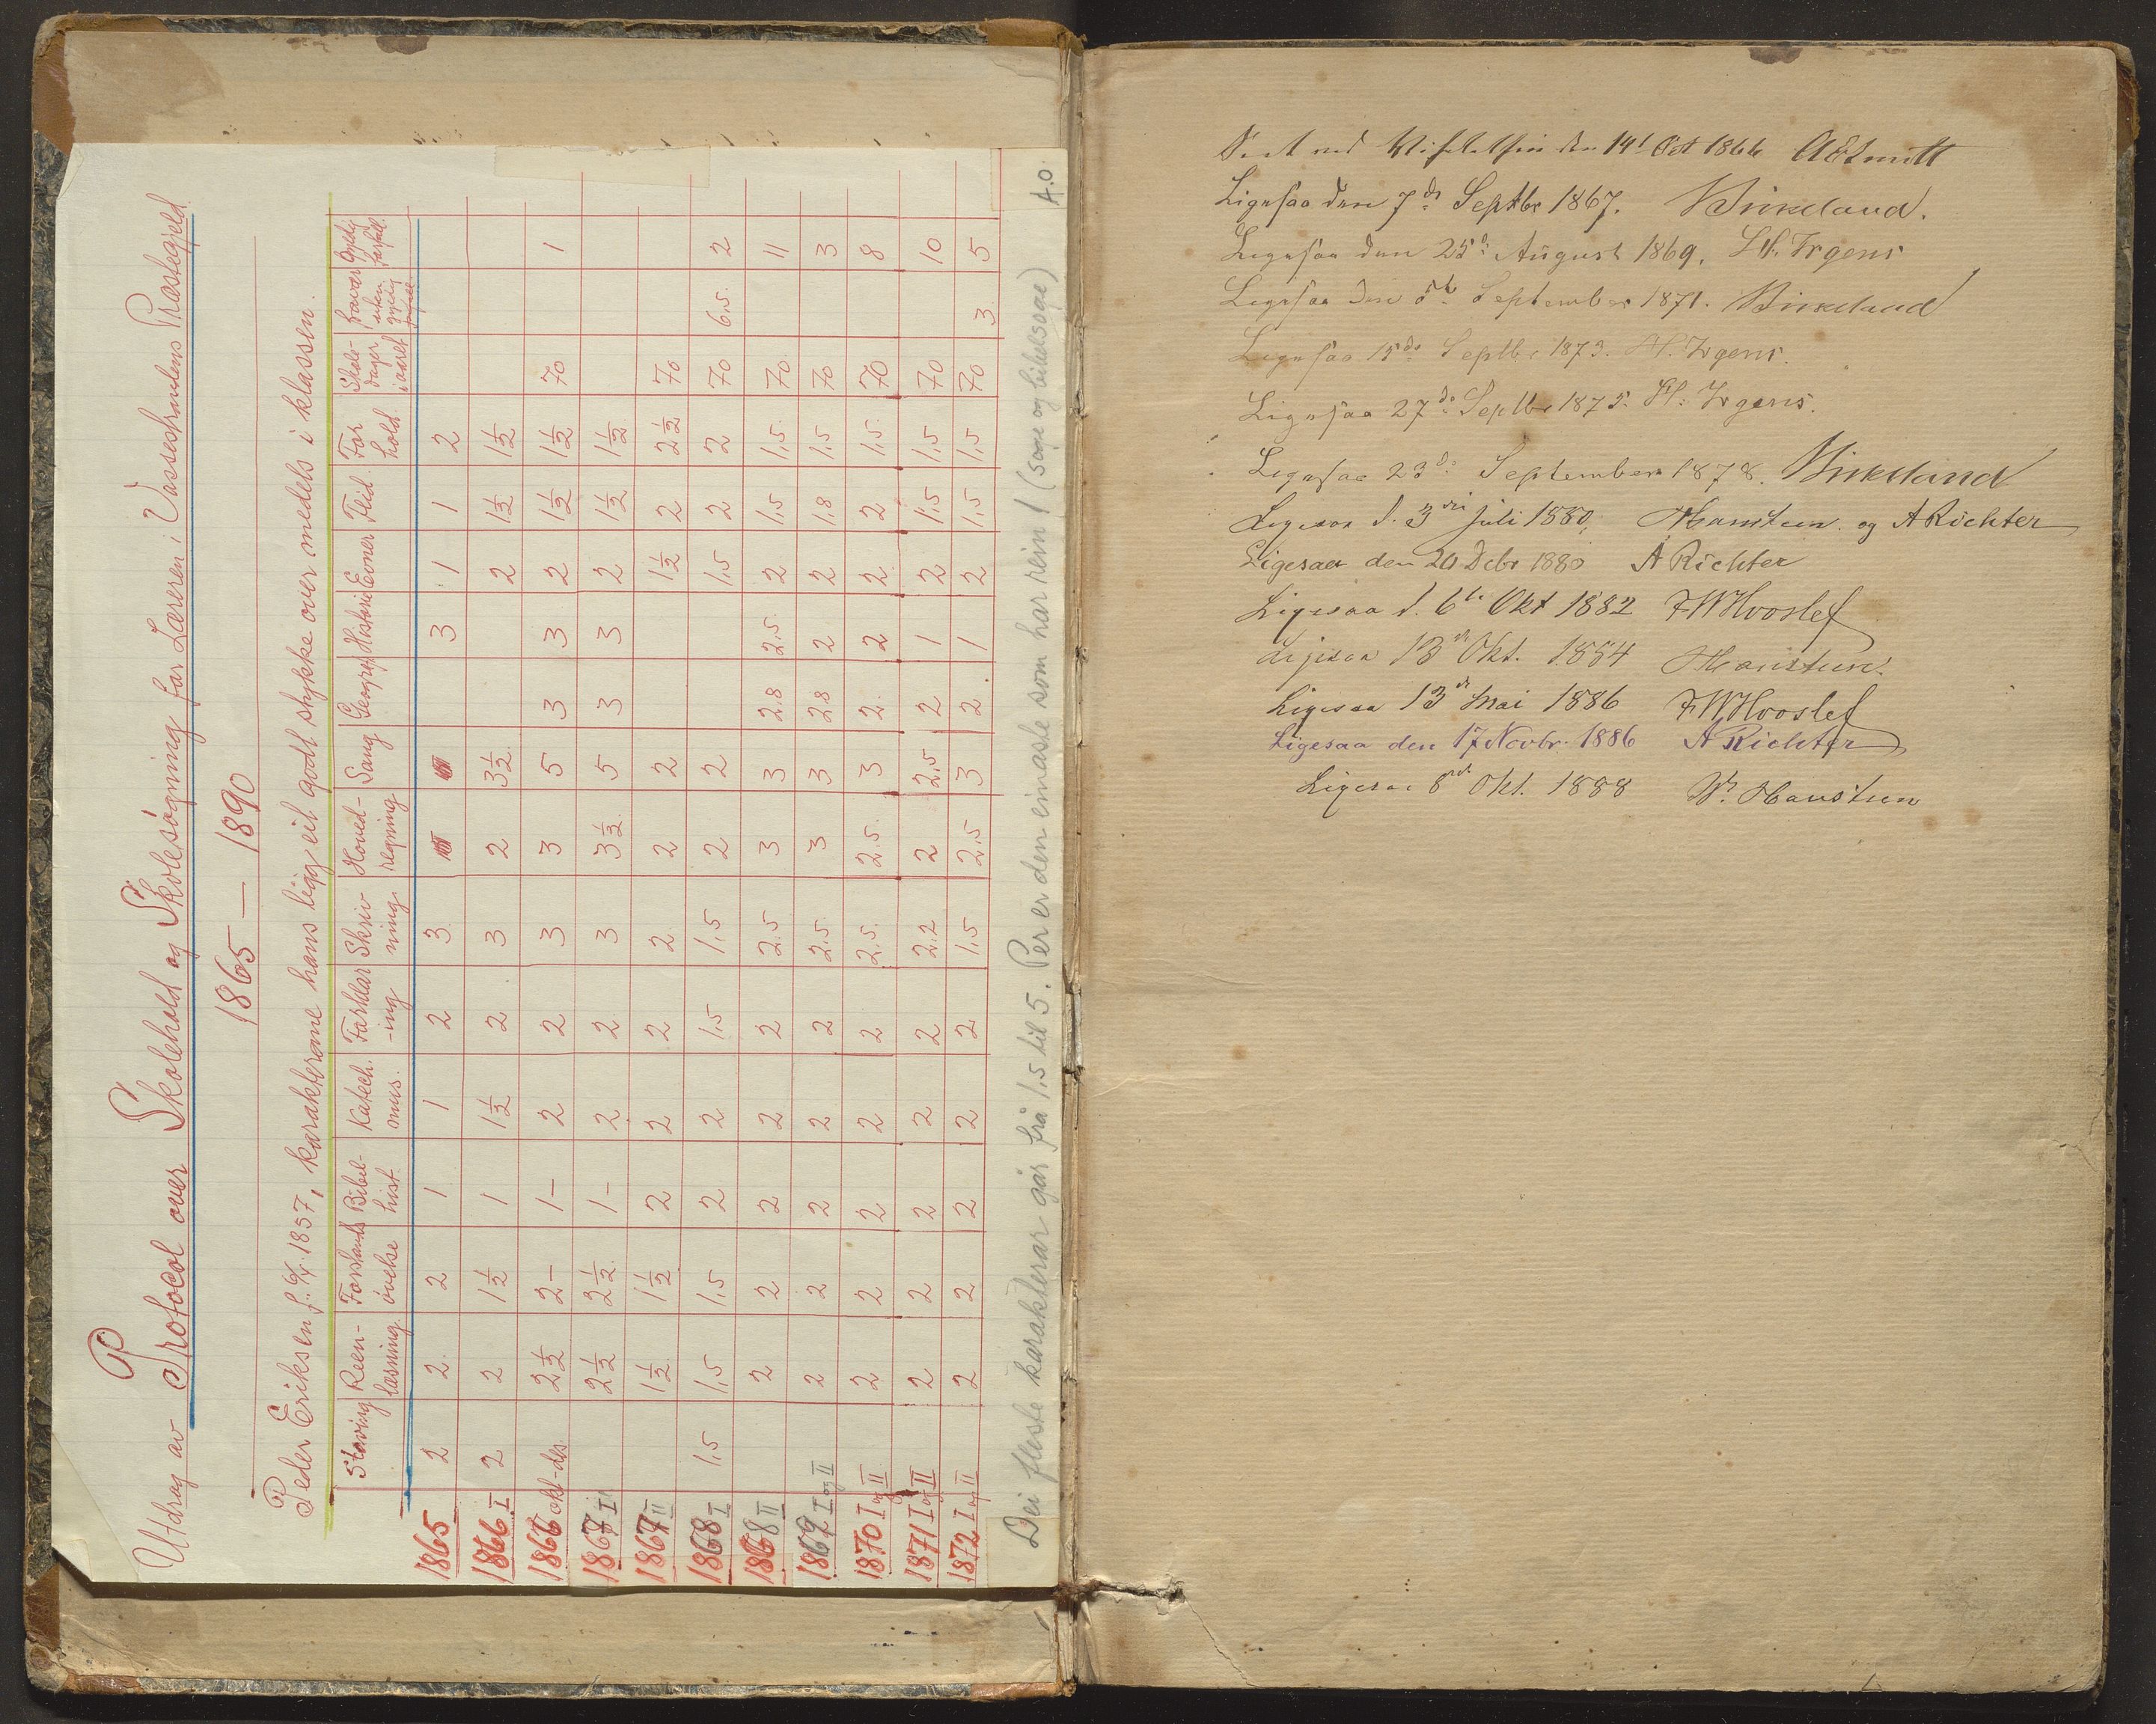 Utdrag av Protocol over Skolehold og Skolesøgning for Læreren i Præstegjeld
1865 — 1890
Peder Eriksen f. 1857, karakterene hans ligg eit godt stykke over medels i klassen.
Staving | Reen-læsning | Forstands øvelse | Bibel-hist | Katech. mus. | Forklar-ing | Skriv ning | Hoved-regning | Sang | Geografi | Historie | Evner | Flid | For hold | Skole-dager i aaret | fravær uten gyldig forfall | Gyldig forfall
1865 | 2 | 2 | 2 | 1 | 1 | 2 | 3 | | | | 3 | 1 | 1 | 2
1866 I | 2 | 2 | 1½ | 1 | 1½ | 2 | 3 | 2 | 3½ | | | 2 | 1½ | 1½
1866 okt-des | | 2½ | 2– | 1– | 2 | 2 | 3 | 3 | 5 | 3 | 3 | 2 | 1½ | 1½ | 70 | | 1
1867 I | | 2½ | 2½ | 1– | 2 | 2 | 3 | 3½ | 5 | 3 | 3 | 2 | 1½ | 1½
1867 II | | 1½ | 1½ | 2 | 2 | 2 | 2 | 2 | 2 | | | 1½ | 2 | 2½ | 70
1868 I | 1,5 | 1,5 | 1,5 | 2 | 2 | 1,5 | 1,5 | 2 | 2 | | | 1,5 | 2 | 2 | 70 | 6,5 | 2
1868 II | | 2 | 2 | 2 | 2 | 2 | 2,5 | 3 | 3 | 2.8 | 2,5 | 2 | 1,5 | 1,5 | 70 | | 11
1869 I og II | | 2 | 2 | 2 | 2 | 2 | 2,5 | 3 | 3 | 2.8 | 2 | 2 | 1,8 | 1,5 | 70 | | 3
1870 I og II | | 2 | 2 | 2 | 2 | 2 | 2,5 | 2,5 | 3 | 2 | 2 | 2 | 2 | 1,5 | 70 | | 8
1871 I og II | | 2 | 2 | 2 | 2 | 2 | 2,2 | 2 | 2,5 | 2 | 1 | 2 | 1,5 | 1,5 | 70 | | 10
1872 I og II | | 2 | 2 | 2 | 2 | 2 | 1,5 | 2,5 | 3 | 2 | 1 | 2 | 1,5 | 1,5 | 70 | 3 | 5
Dei fleste karakterar går frå 1,5 til 5. Per er den einaste som har rein 1 (soge og bibelsoge) A.O.
Seet ved Visitatsen den 14' Oct 1866
Ligesaa den 7de Septbr 1867. Birkeland.
Ligesaa den 25de August 1869. Irgens
Ligesaa den 5te September 1871. Birkeland
Ligesaa 15de Septbr 1873. Irgens.
Ligesaa 27de Septbr 1875. Irgens.
Ligesaa 23de September 1878. Birkeland
Ligesaa d. 3die Juli 1880. Hansteen og A Richter
Ligesaa den 20 Debr 1880 A Richter
Ligesaa d. 6te Okt 1882 FWHvoslef
Ligesaa 13de Okt. 1884 Hansteen.
Ligesaa 13de Mai 1886 FWHvoslef
Ligesaa den 17 Novbr. 1886 A Richter
Ligesaa 8de Okt. 1888 Hansteen